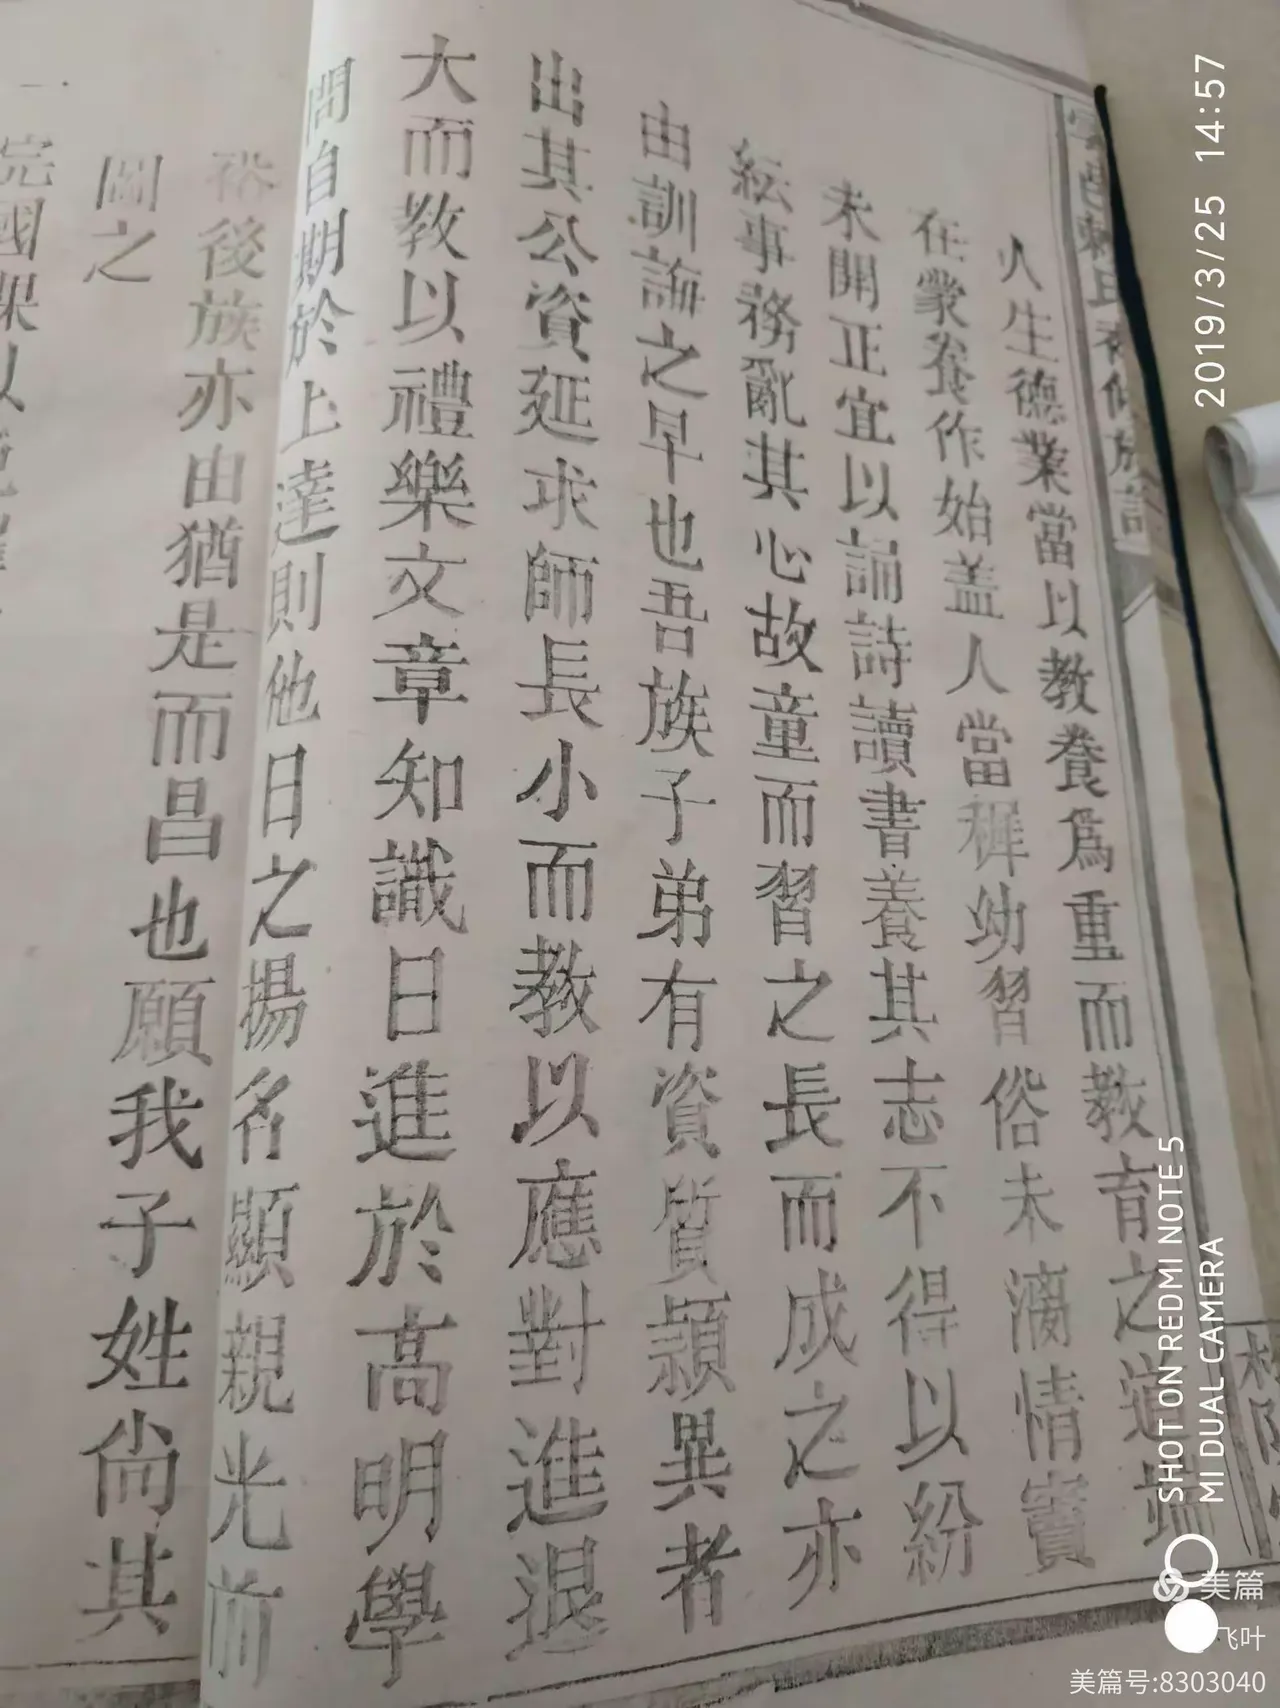 人生德業當以教養為重而教育之道端
在蒙養作始盖人當穉幼習俗未漓情竇
未開正宜以誦詩讀書養其志不得以紛
紜事務亂其心故童而習之長而成之亦
由訓誨之早也吾族子弟有資質穎異者
出其公資延求師長小而教以應對進退
大而教以禮樂文章知識日進於高明學
問自期於上達則他日之揚名顯親光前
裕後族亦由猶是而昌也願我子姓尚其
圖之
一完國課以
2019/3/25 14:57
SHOT ON REDMI NOTE 5
MI DUAL CAMERA
美篇
飞叶
美篇号:8303040